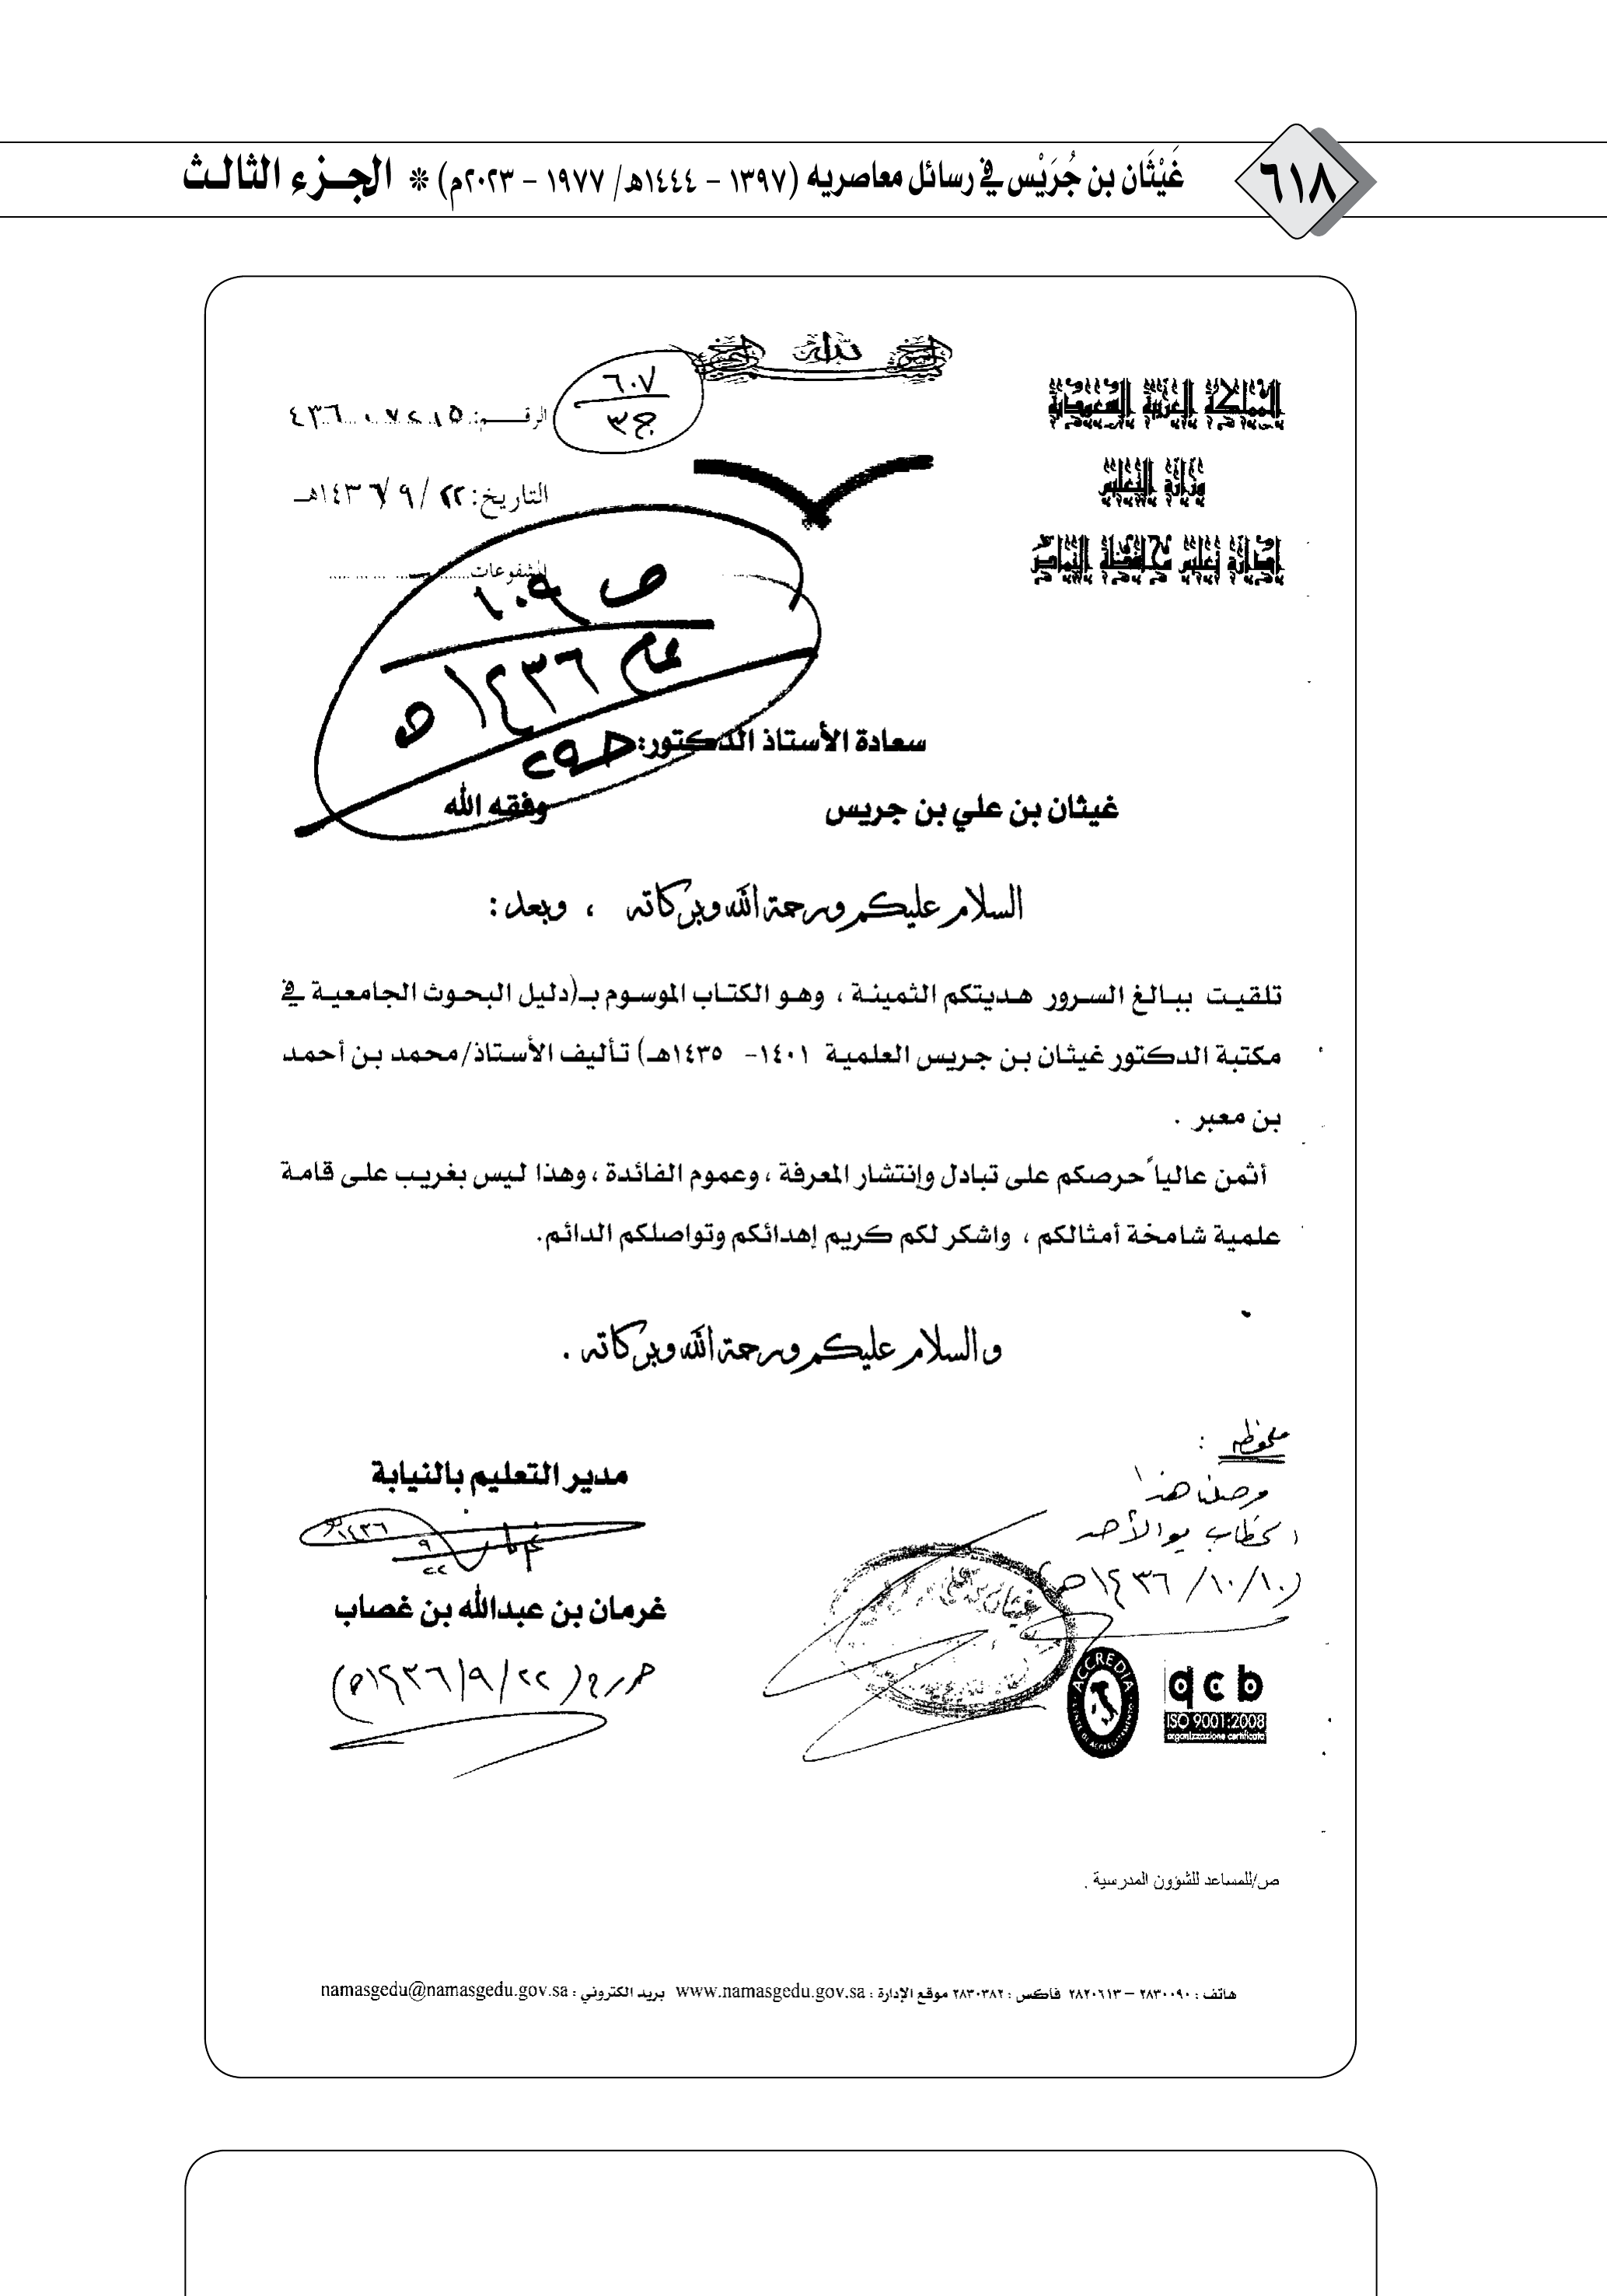 ٦١٨
غَيْثَان بن جُرَيْس في رسائل معاصريه (١٣٩٧ - ١٤٤٤هـ/ ١٩٧٧ - ٢٠٢٣م) * الجزء الثالث
المملكة العربية السعودية
وزارة التعليم
إدارة تعليم محافظة النماص
٦٠٧
ج٣
الرقم:
التاريخ: ٢٢ / ٩ / ١٤٣٦هـ
المشفوعات
ص ١٠٩
عام ١٤٣٦هـ
سعادة الأستاذ الدكتور:
غيثان بن علي بن جريس وفقه الله
السلام عليكم ورحمة الله وبركاته ، وبعد :
تلقيت ببالغ السرور هديتكم الثمينة ، وهو الكتاب الموسوم بـ(دليل البحوث الجامعية في
مكتبة الدكتور غيثان بن جريس العلمية ١٤٠١- ١٤٣٥هـ) تأليف الأستاذ/محمد بن أحمد
بن معبر .
أثمن عالياً حرصكم على تبادل وإنتشار المعرفة ، وعموم الفائدة ، وهذا ليس بغريب على قامة
علمية شامخة أمثالكم ، واشكر لكم كريم إهدائكم وتواصلكم الدائم.
والسلام عليكم ورحمة الله وبركاته .
ملحوظة :
وصلنا هذا
الخطاب يوم الأحد
(١٠/١٠/ ١٤٣٦هـ)
مدير التعليم بالنيابة
١٤٣٦
٩
٢٢
غرمان بن عبدالله بن غصاب
(٢٢/٩/١٤٣٦هـ)
ACCREDIA
qcb
ISO 9001:2008
organizzazione certificata
ص/للمساعد للشؤون المدرسية .
هاتف : ٢٨٣٠٠٩٠ – ٢٨٢٠٦١٣ فاكس : ٢٨٣٠٣٨٢ موقع الإدارة : www.namasgedu.gov.sa بريد الكتروني : namasgedu@namasgedu.gov.sa